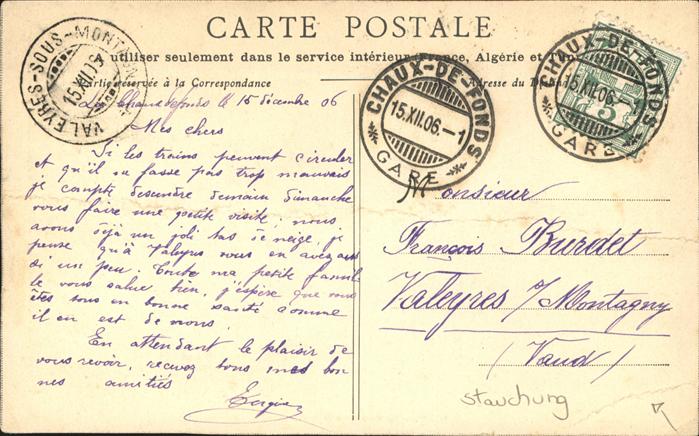 CARTE POSTALE
A utiliser seulement dans le service intérieur (France, Algérie et Tunisie
Partie réservée à la Correspondance
Adresse du
VALEYRES-SOUS-MONTAGNY
15.XII.06
CHAUX-DE-FONDS
15.XII.06.-1
GARE
CHAUX-DE-FONDS
15.XII.06.-1
GARE
5
La Chaux de fonds le 15 décembre 06
Mes chers
Si les trains peuvent circuler
et qu'il ne fasse pas trop mauvais
je compte descendre demain dimanche
vous faire une petite visite; nous
avons déjà un joli tas de neige, je
pense qu'à Valeyres vous en avez aussi
di un peu. Toute ma petite famil
le vous salue bien, j'espère que vous
êtes tous en bonne santé comme
il en est de nous.
En attendant le plaisir de
vous revoir, recevez tous mes bon
nes amitiés
Monsieur
François Burdet
Valeyres s/Montagny
(Vaud)
stauchung